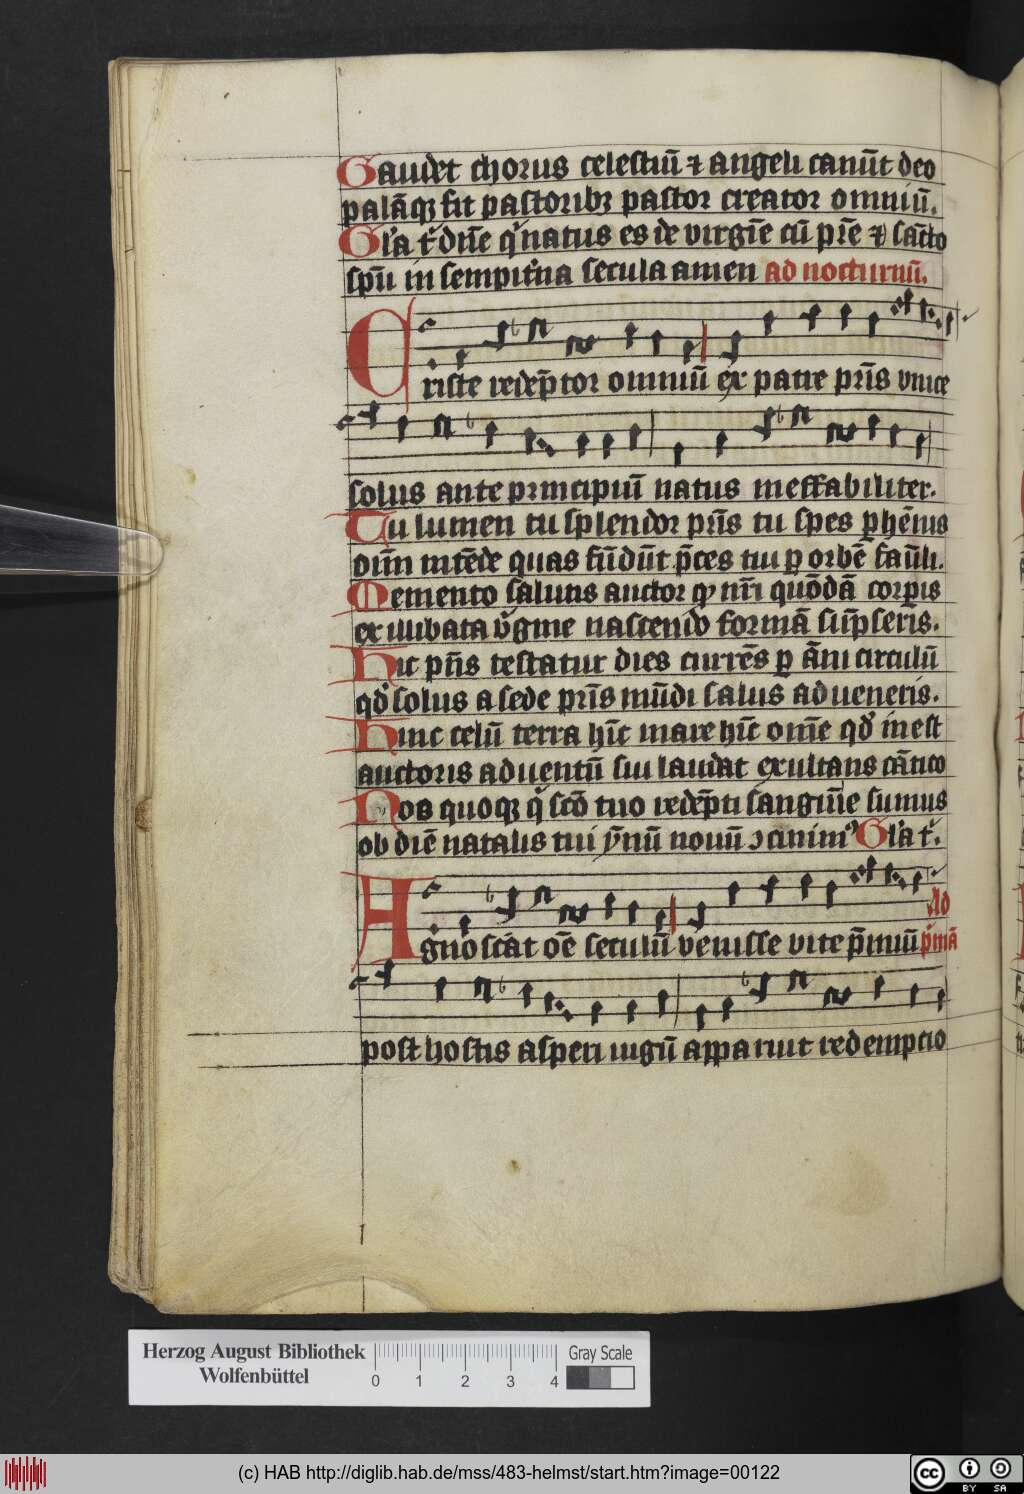 Gaudet chorus celestiū ⁊ angeli canūt deo
palāqꝫ fit pastoribꝫ pastor creator omniū.
Gl'a t' dn̄e q' natus es de virgīe cū pr̄e ⁊ sācto
sp̄u in sempit'na secula amen ad nocturnū.
Criste redēptor omniū ex patre pr̄is vnice
solus ante principiū natus ineffabiliter.
Tu lumen tu splendor pr̄is tu spes ꝑhēnis
oīm intēde quas fūdūt p̄ces tui ꝑ orbē fāuli.
Memento salutis auctor ꝙ nr̄i quōdā corꝑis
ex illibata v'gine nascendo formā sūpseris.
Hic pn̄s testatur dies currēs ꝑ āni circulū
qd' solus a sede pr̄is mūdi salus adueneris.
Hinc celū terra hūc mare hūc om̄e qd' in est
auctoris aduentū sui laudat exultans cātico
Nos quoqꝫ q' scō tuo redēpti sangiūe sumus
ob diē natalis tui ȳnū nouū ↄcinim' Gl'a t'.
Ad
Agnoscat oē seculū venisse vite p̄miū p'mā
post hostis asperi iugū apparuit redemptio
Herzog August Bibliothek
Wolfenbüttel
0 1 2 3 4
Gray Scale
(c) HAB http://diglib.hab.de/mss/483-helmst/start.htm?image=00122
cc BY SA